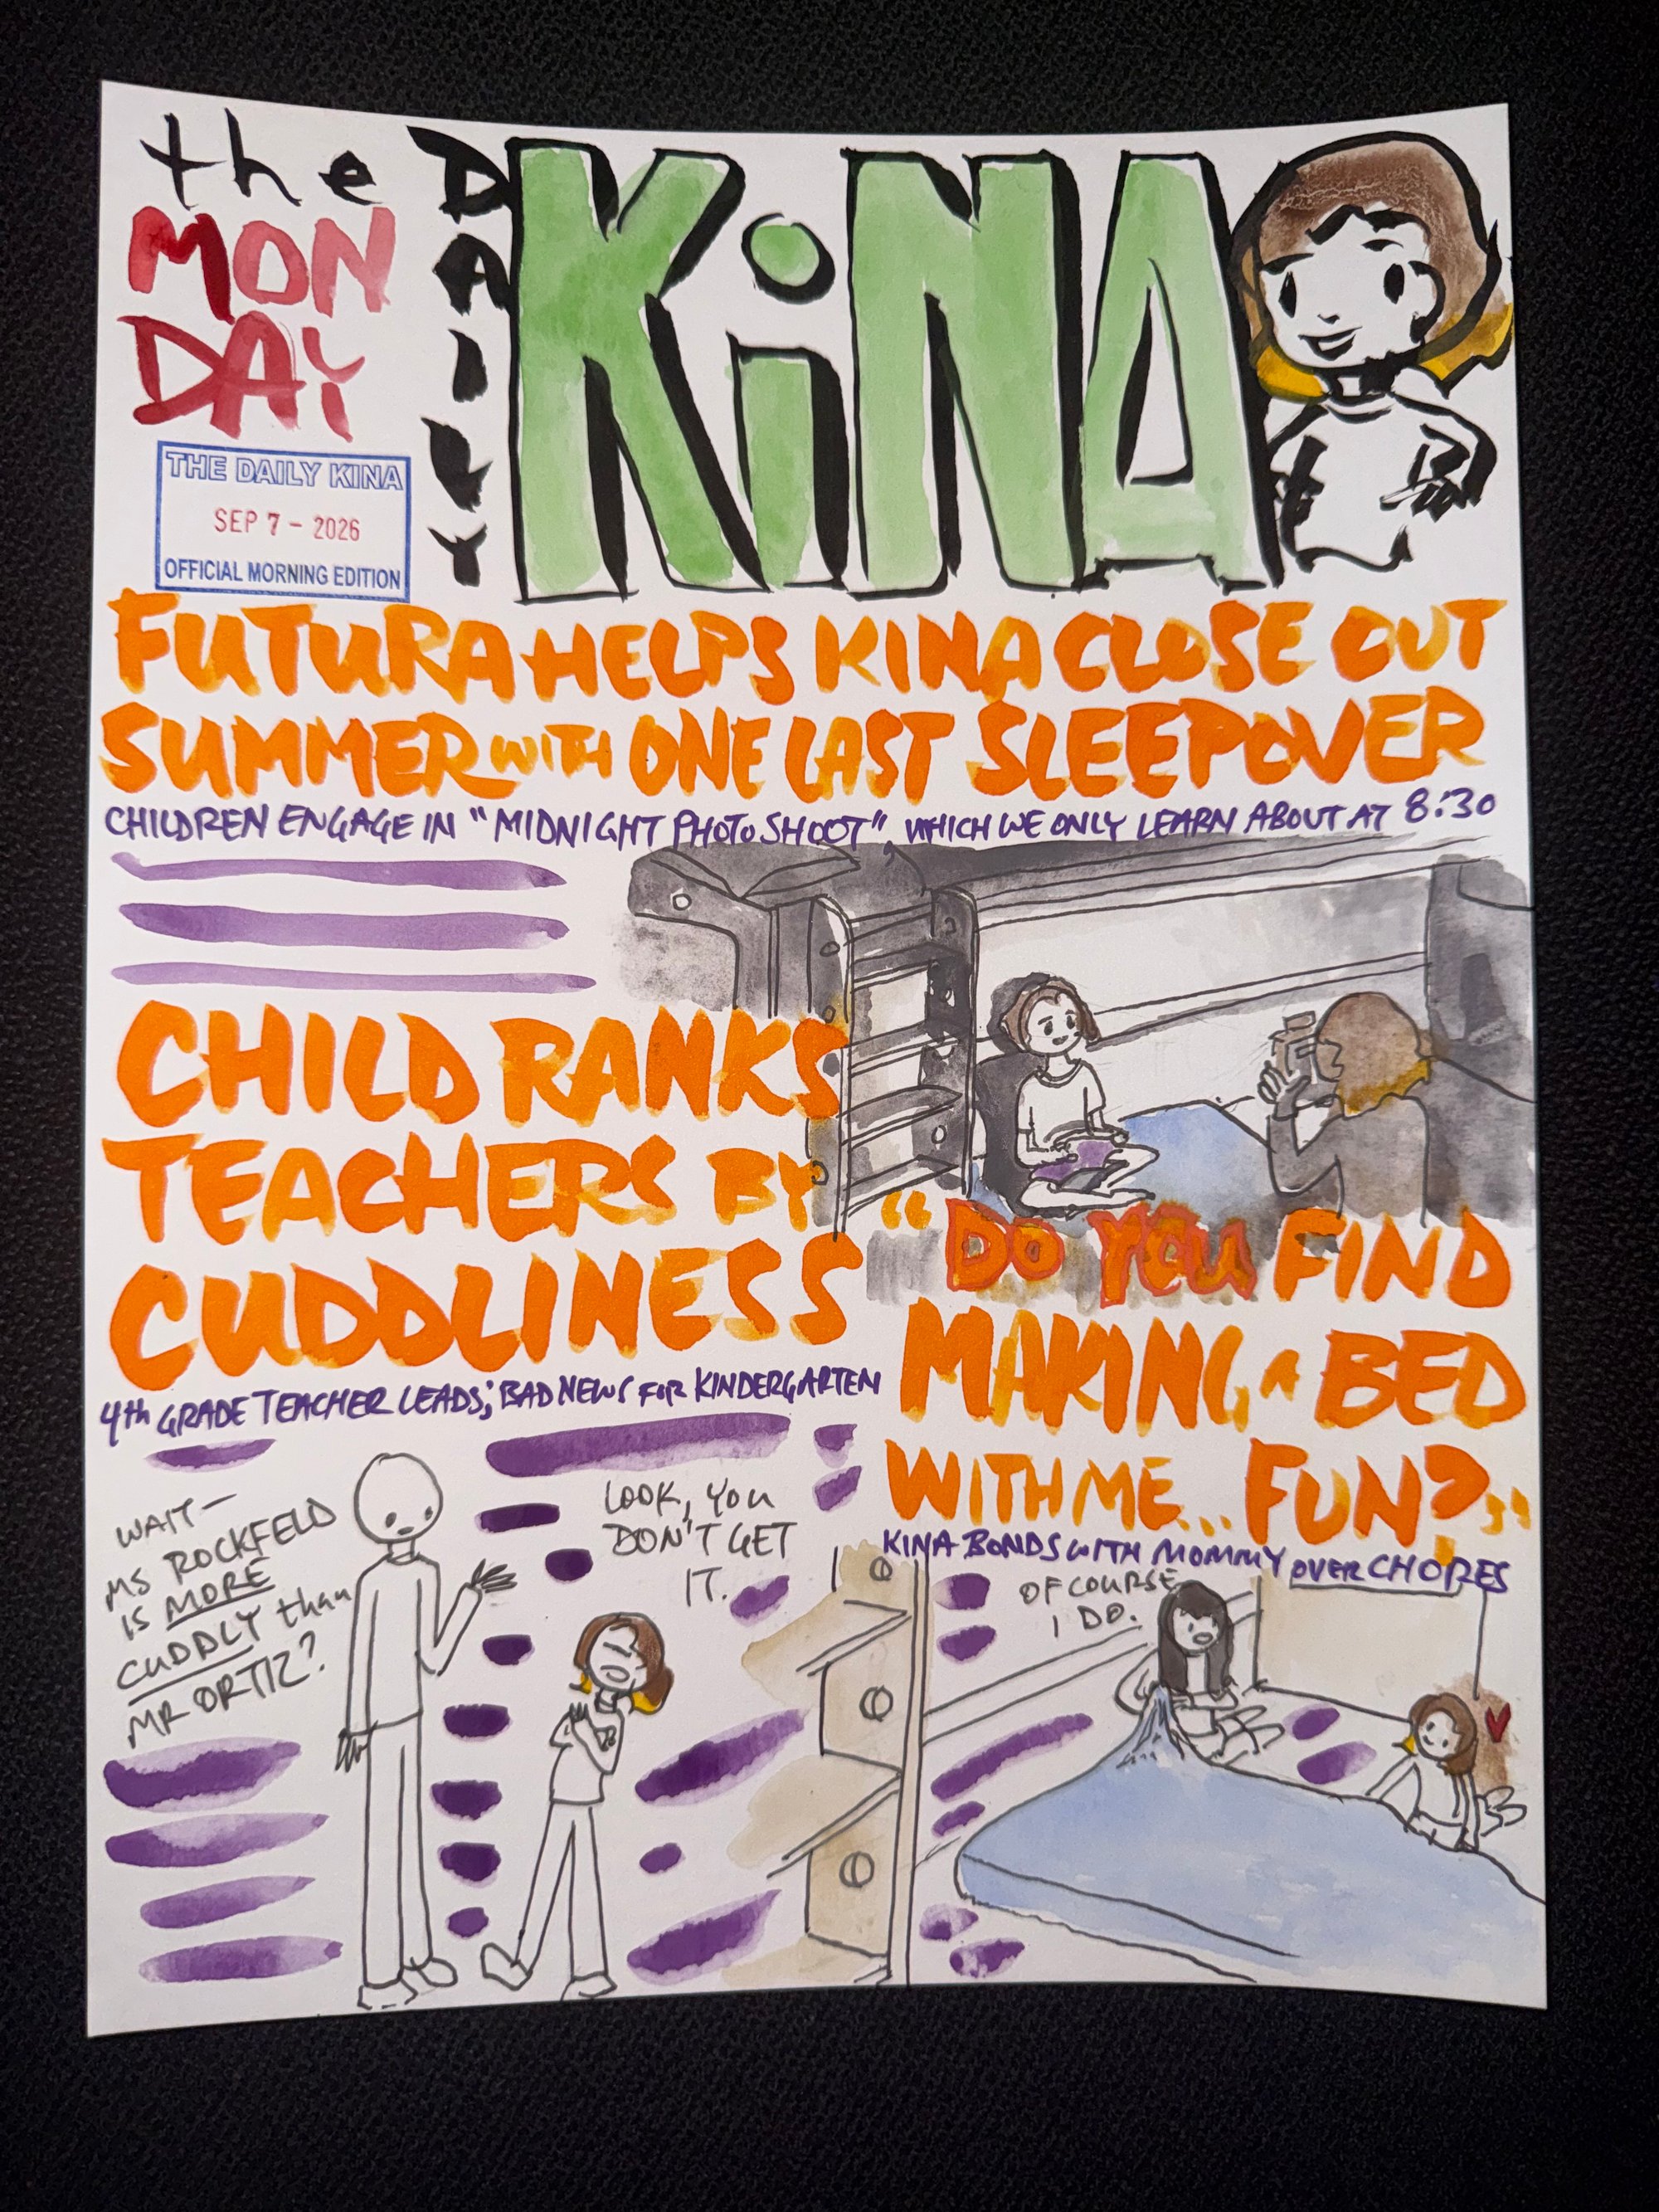 the
MON
DAY
DAILY
KiNA
THE DAILY KINA
SEP 7 - 2026
OFFICIAL MORNING EDITION
FUTURA HELPS KINA CLOSE OUT
SUMMER WITH ONE LAST SLEEPOVER
CHILDREN ENGAGE IN "MIDNIGHT PHOTO SHOOT", WHICH WE ONLY LEARN ABOUT AT 8:30
CHILD RANKS
TEACHERS BY
CUDDLINESS
4th GRADE TEACHER LEADS; BAD NEWS FOR KINDERGARTEN
WAIT—
MS ROCKFELD
IS MORE
CUDDLY than
MR ORTIZ?
LOOK, YOU
DON'T GET
IT.
"DO YOU FIND
MAKING A BED
WITH ME... FUN?"
KINA BONDS WITH MOMMY OVER CHORES
OF COURSE
I DO.